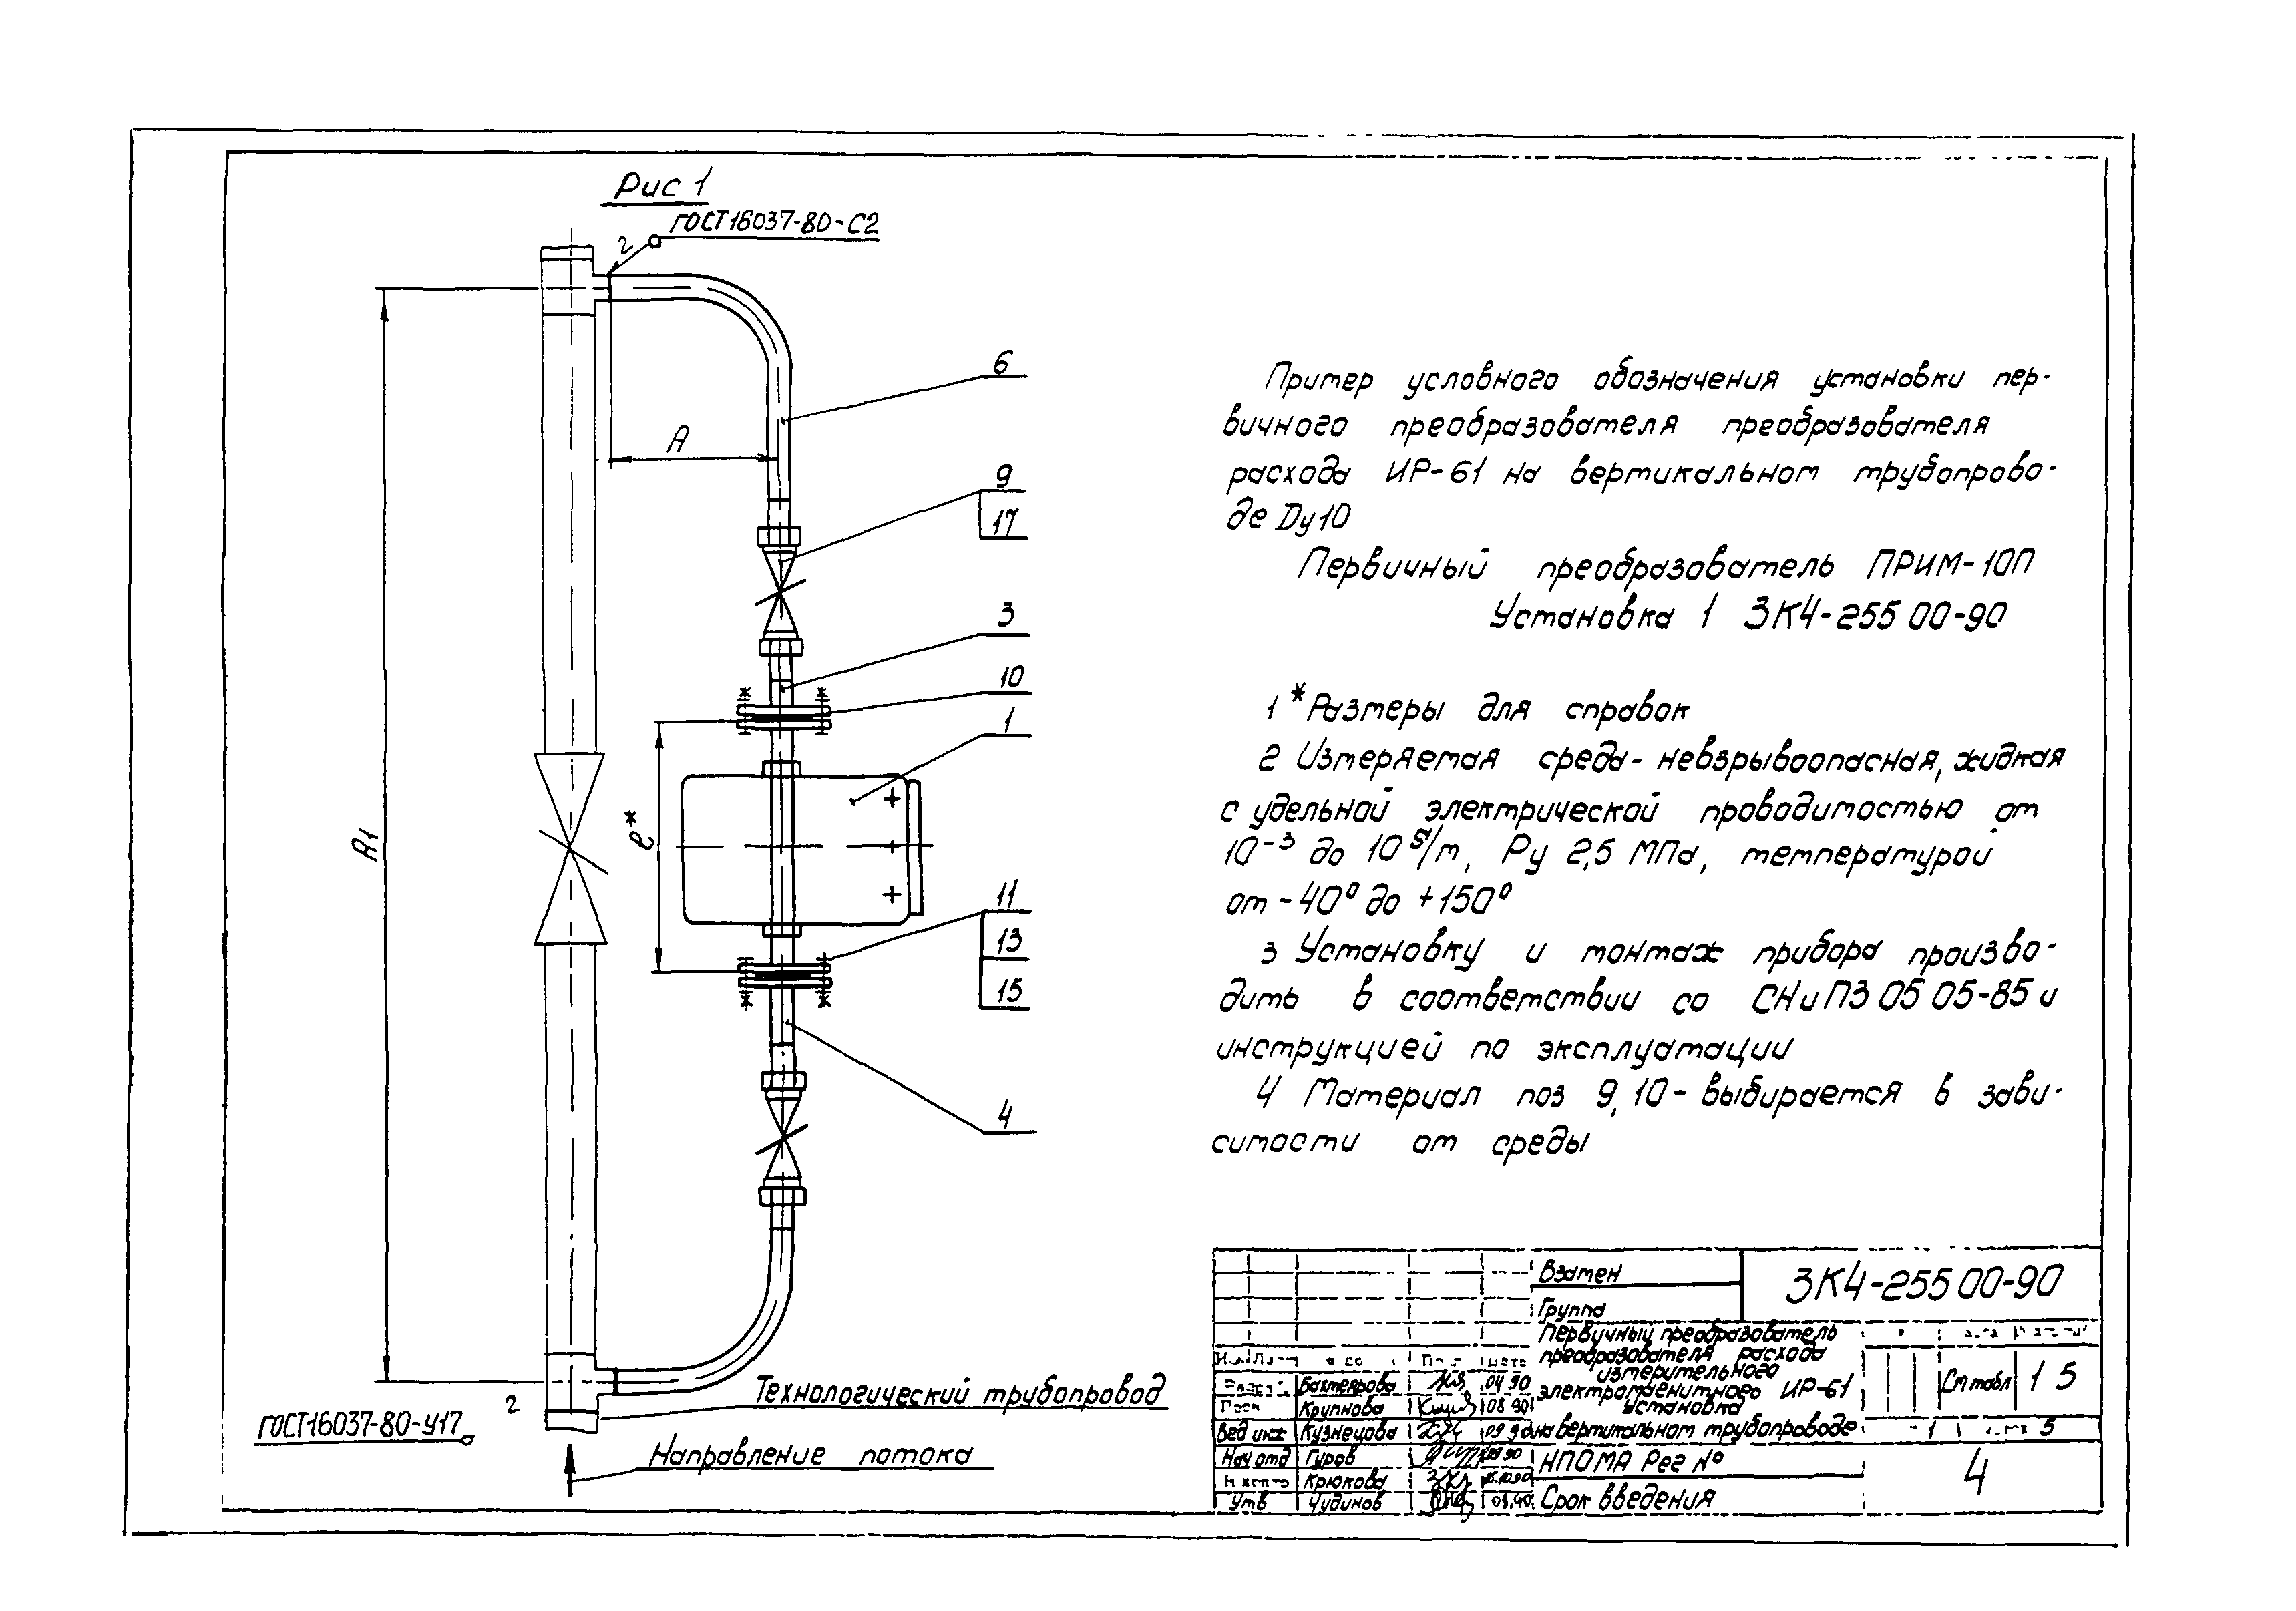 Рис 1
ГОСТ16037-80-С2
2
6
А
9
17
3
10
1
А1
ℓ*
11
13
15
4
Технологический трубопровод
2
ГОСТ16037-80-У17
Направление потока
Пример условного обозначения установки пер-
вичного преобразователя преобразователя
расхода ИР-61 на вертикальном трубопрово-
де Dу10
Первичный преобразователь ПРИМ-10П
Установка 1 ЗК4-255 00-90
1 * Размеры для справок
2 Измеряемая среда - невзрывоопасная, жидкая
с удельной электрической проводимостью от
10⁻³ до 10 S/m, Ру 2,5 МПа, температурой
от -40° до +150°
3 Установку и монтаж прибора произво-
дить в соответствии со СНиП3 05 05-85 и
инструкцией по эксплуатации
4 Материал поз 9, 10 - выбирается в зави-
симости от среды
Взамен
ЗК4-255 00-90
Группа
Первичный преобразователь
преобразователя расхода
измерительного
электромагнитного ИР-61
Установка
на вертикальном трубопроводе
См табл
1 5
1
5
Бахтеярова 04 90
Крупнова 08 90
Вед инж Кузнецова 09 90
Нач отд Гуров 09 90
Крюкова
Утв Чудинов
НПОМА Рег №
Срок введения
4